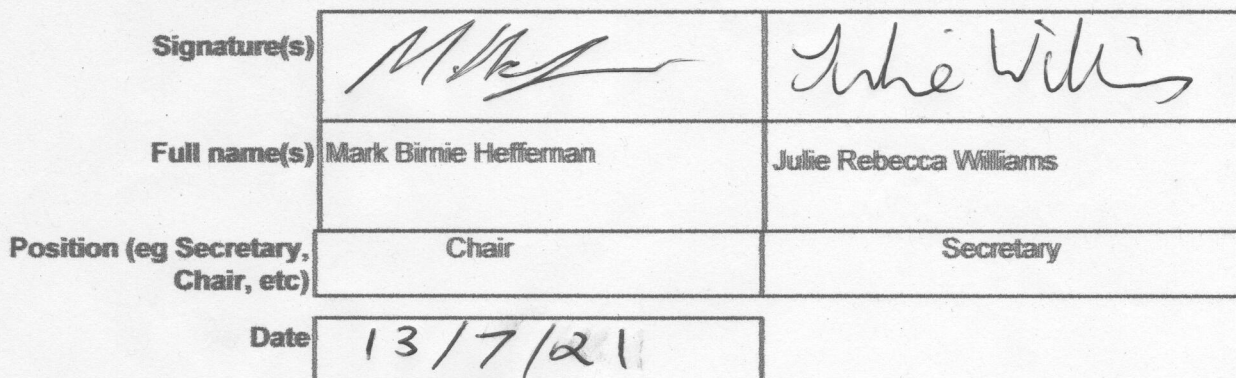 Signature(s)
Julie Willi
Full name(s) Mark Birnie Heffernan Julie Rebecca Williams
Position (eg Secretary, Chair Secretary
Chair, etc)
Date 13/7/21